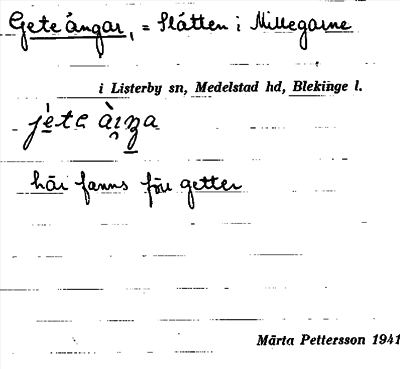 Geteångar, = Slåtten i Millegarne
i Listerby sn, Medelstad hd, Blekinge l.
här fanns förr getter
Märta Pettersson 1941